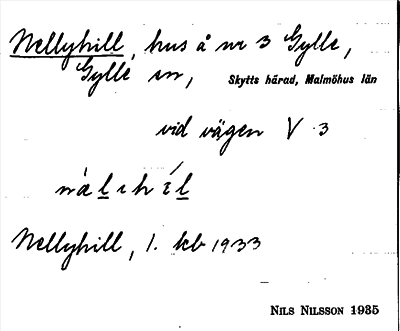 Nellyhill, hus å nr 3 Gylle,
Gylle sn, Skytts härad, Malmöhus län
vid vägen V 3
næ̀lıhı́l
Nellyhill, l. kb 1933
NILS NILSSON 1935